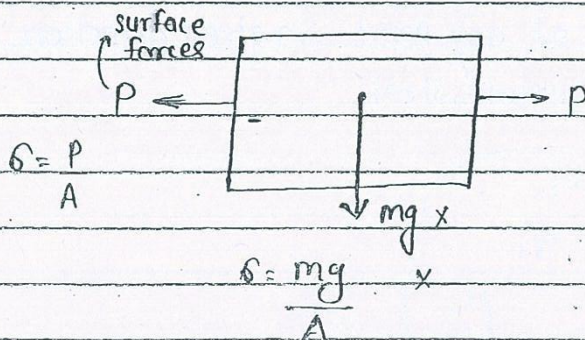 surface
forces
P
P
σ = P/A
mg x
σ = mg/A x